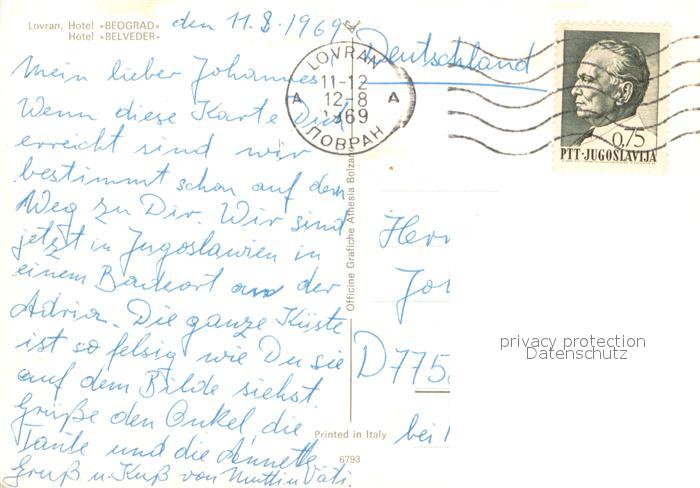 Lovran, Hotel «BEOGRAD»
Hotel «BELVEDER»
den 11.8.1969
Mein lieber Johannes
Wenn diese Karte Dich
erreicht sind wir
bestimmt schon auf dem
Weg zu Dir. Wir sind
jetzt in Jugoslawien in
einem Badeort an der
Adria. Die ganze Küste
ist so felsig wie Du sie
auf dem Bilde siehst
Grüße den Onkel die
Tante und die Annette
Gruß u. Kuß von Mutti u Vati.
Officine Grafiche Athesia Bolzano
Printed in Italy
6793
LOVRAN
11-12
A 12-8 A
1969
ЛОВРАН
Deutschland
0,75
PTT·JUGOSLAVIJA
Herr
Joh
D 775
bei
privacy protection
Datenschutz